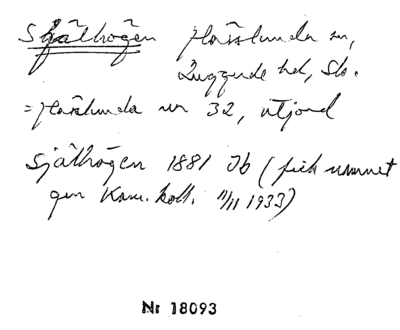 Själhögen Hässlunda sn,
Luggude hd, Sk.
= Hässlunda nr 32, utjord
Själhögen 1881 Jb (fick namnet
gm Kam. koll. 11/11 1933)
Nr 18093